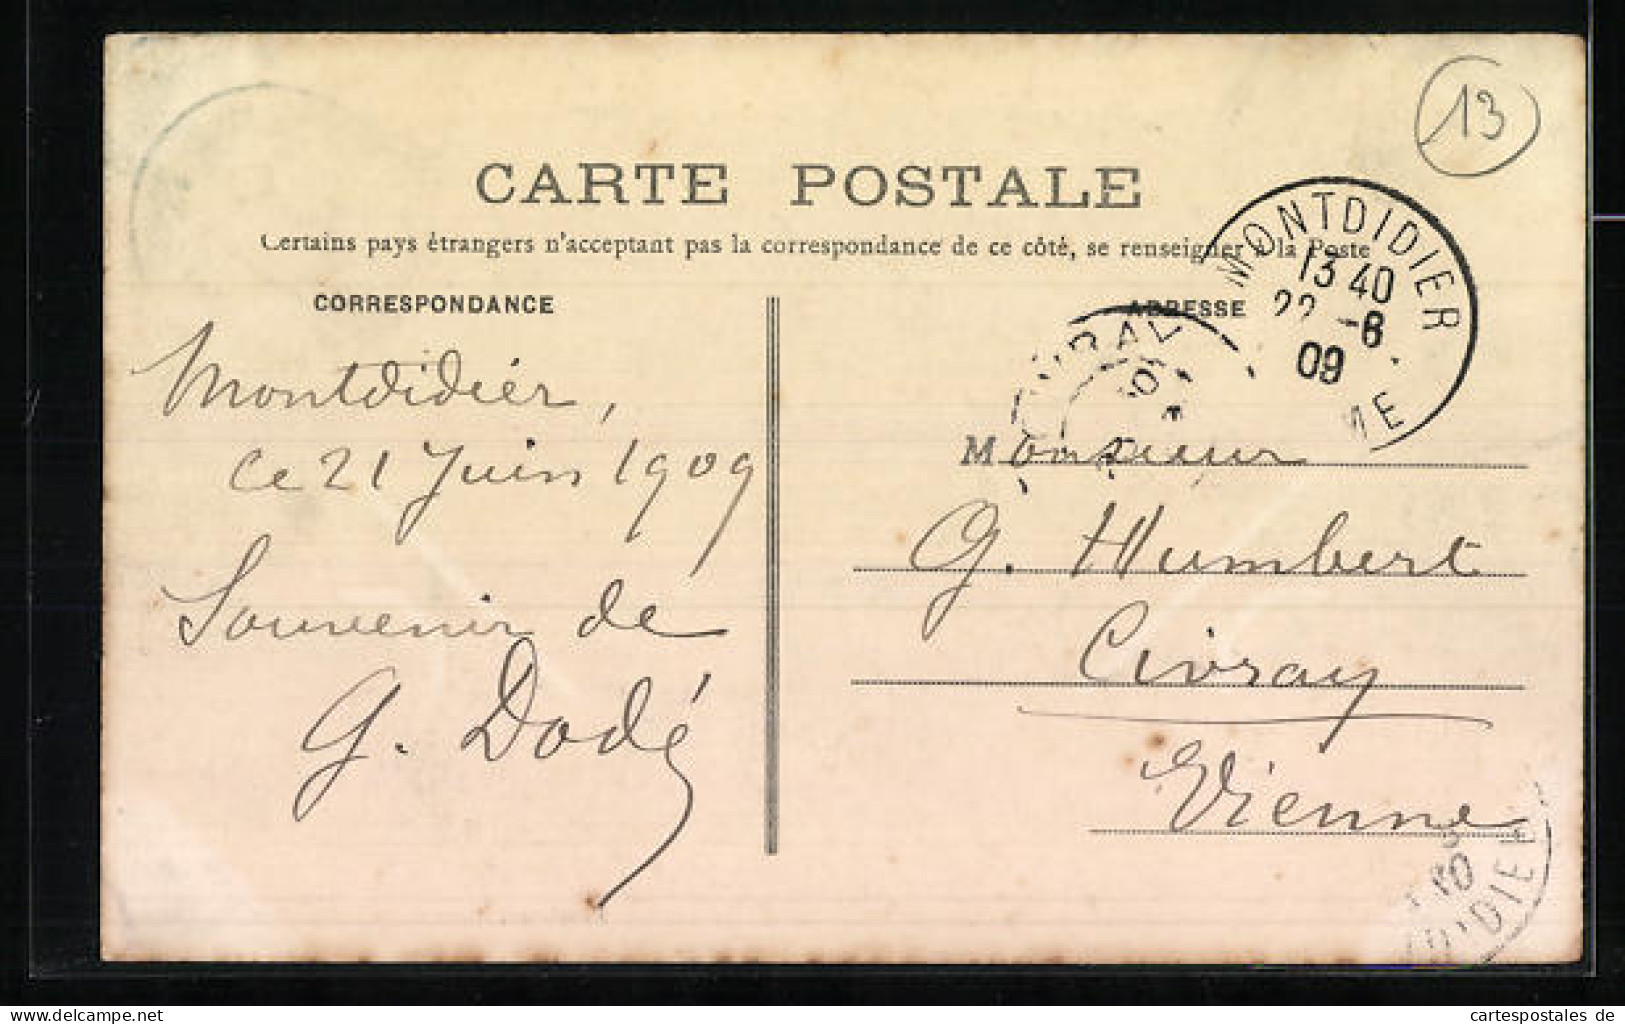 13
CARTE POSTALE
Certains pays étrangers n'acceptent pas la correspondance de ce côté, se renseigner à la Poste
CORRESPONDANCE
Montdidier,
ce 21 Juin 1909
Souvenir de
G. Dodé
ADRESSE
MONTDIDIER
13 40
22 -6
09
Monsieur
G. Humbert
Civray
Vienne
www.cartespostales.de/cme
cartespostales de